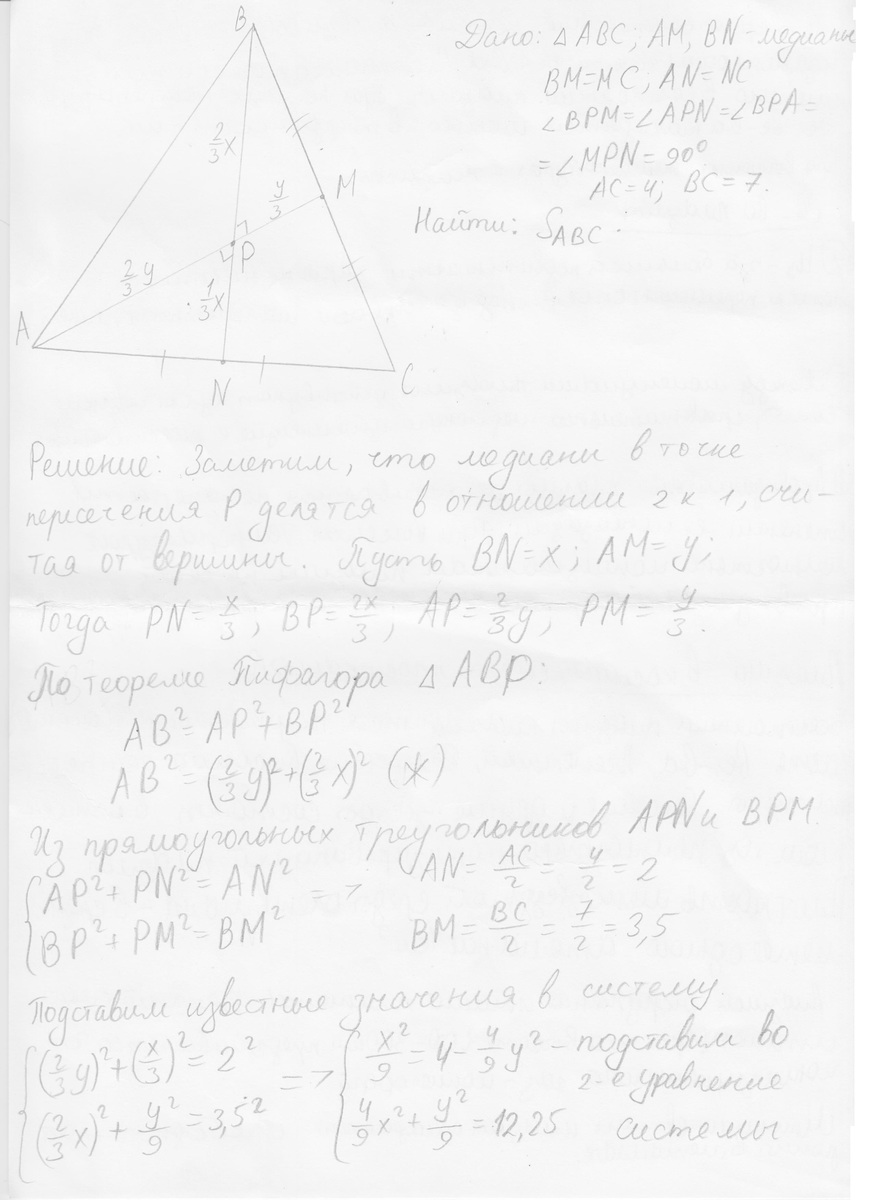 B
2/3 x
y/3
M
P
2/3 y
1/3 x
A
N
C
Дано: △ABC; AM, BN - медианы
BM=MC; AN=NC
∠BPM=∠APN=∠BPA=
=∠MPN=90°
AC=4; BC=7.
Найти: S_ABC.
Решение: Заметим, что медиани в точке
пересечения P делятся в отношении 2 к 1, счи-
тая от вершины. Пусть BN=x; AM=y;
Тогда PN=x/3; BP=2x/3; AP=2/3 y; PM=y/3.
По теореме Пифагора △ABP:
AB²=AP²+BP²
AB²=(2/3 y)²+(2/3 x)² (*)
Из прямоугольных треугольников APN и BPM.
{ AP²+PN²=AN² => AN=AC/2=4/2=2
BP²+PM²=BM² BM=BC/2=7/2=3,5
Подставим известные значения в систему.
{ (2/3 y)²+(x/3)²=2² => { x²/9=4-4/9 y² - подставим во
2-е уравнение
(2/3 x)²+y²/9=3,5² 4/9 x²+y²/9=12,25 системы